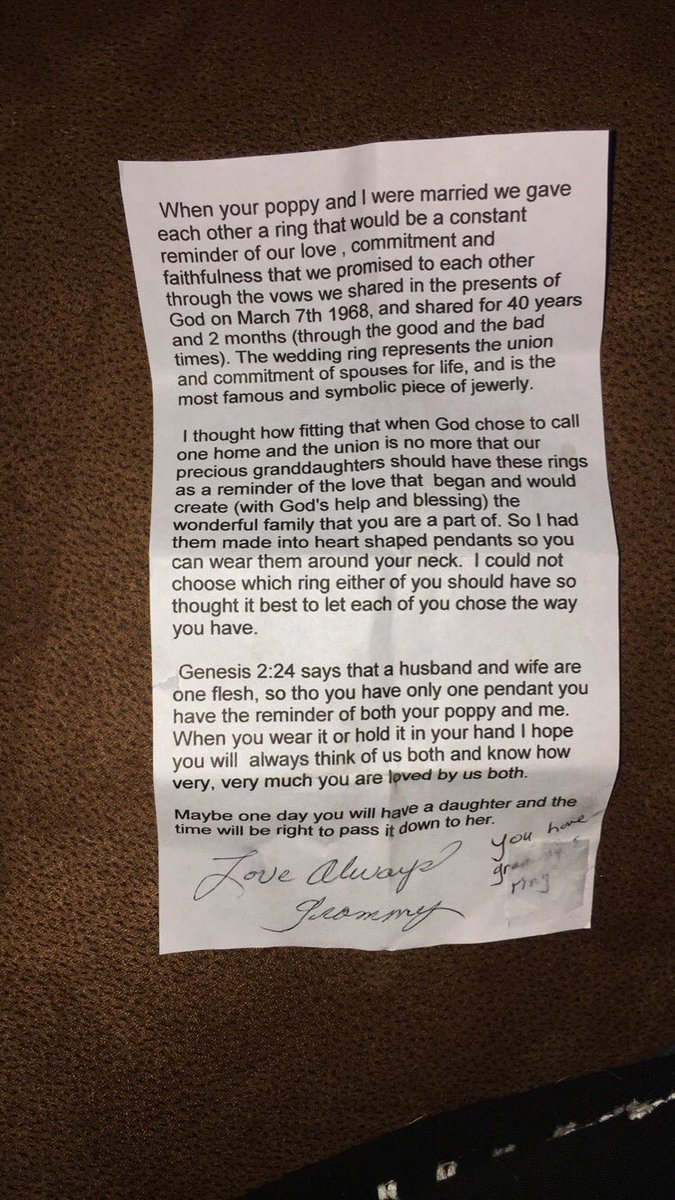 When your poppy and I were married we gave
each other a ring that would be a constant
reminder of our love , commitment and
faithfulness that we promised to each other
through the vows we shared in the presents of
God on March 7th 1968, and shared for 40 years
and 2 months (through the good and the bad
times). The wedding ring represents the union
and commitment of spouses for life, and is the
most famous and symbolic piece of jewerly.
I thought how fitting that when God chose to call
one home and the union is no more that our
precious granddaughters should have these rings
as a reminder of the love that began and would
create (with God's help and blessing) the
wonderful family that you are a part of. So I had
them made into heart shaped pendants so you
can wear them around your neck. I could not
choose which ring either of you should have so
thought it best to let each of you chose the way
you have.
Genesis 2:24 says that a husband and wife are
one flesh, so tho you have only one pendant you
have the reminder of both your poppy and me.
When you wear it or hold it in your hand I hope
you will always think of us both and know how
very, very much you are loved by us both.
Maybe one day you will have a daughter and the
time will be right to pass it down to her.
Love Always
Grammy
you have
ring